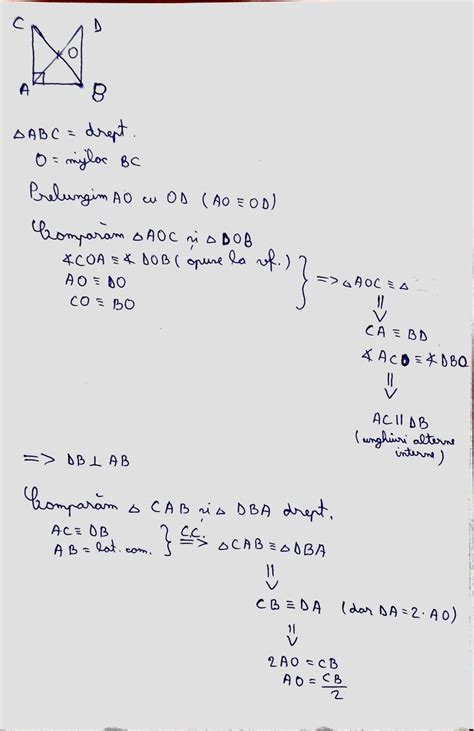 C D
O
A B
△ABC = drept.
O = mijloc BC
Prelungim AO cu OD (AO ≡ OD)
Comparăm △AOC și △DOB
∢COA ≡ ∢DOB (opuse la vf.)
AO ≡ DO
CO ≡ BO
=> △AOC ≡ △
⇓
CA ≡ BD
∢ACO ≡ ∢DBO
⇓
AC || DB
(unghiuri alterne
interne)
=> DB ⊥ AB
Comparăm △ CAB și △ DBA drept.
AC ≡ DB
AB = lat. com.
C.C.
=> △CAB ≡ △DBA
⇓
CB ≡ DA (dar DA = 2·AO)
⇓
2AO = CB
AO = CB/2